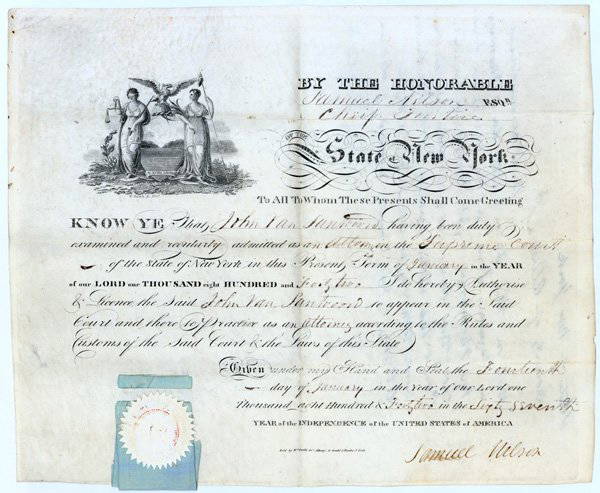 BY THE HONORABLE
Samuel Nelson ESQR.
Chief Justice
OF THE
State of New York
To All To Whom These Presents Shall Come Greeting
KNOW YE That John Van Santvoord having been duly
examined and regularly admitted as an Attorney in the Supreme Court
of the State of New York in this Present Term of January in the YEAR
of our LORD one THOUSAND eight HUNDRED and Forty two I do hereby Authorise
& Licence the Said John Van Santvoord to appear in the Said
Court and there to Practice as an Attorney according to the Rules and
Customs of the Said Court & the Laws of this State
Given under my Hand and Seal the Fourteenth
day of January in the Year of our Lord one
Thousand eight Hundred & Forty two in the Sixty Seventh
YEAR of the INDEPENDENCE of the UNITED STATES of AMERICA
Samuel Nelson